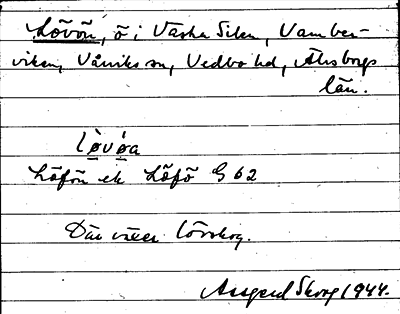 Lövön, ö i Västra Silen, Vamber-
viken, Vårviks sn, Vedbo hd, Älvsborgs
län.
Lövöa
Löfön ek Löfö G 62
Där växer lövskog.
Assgerd Skog 1944.